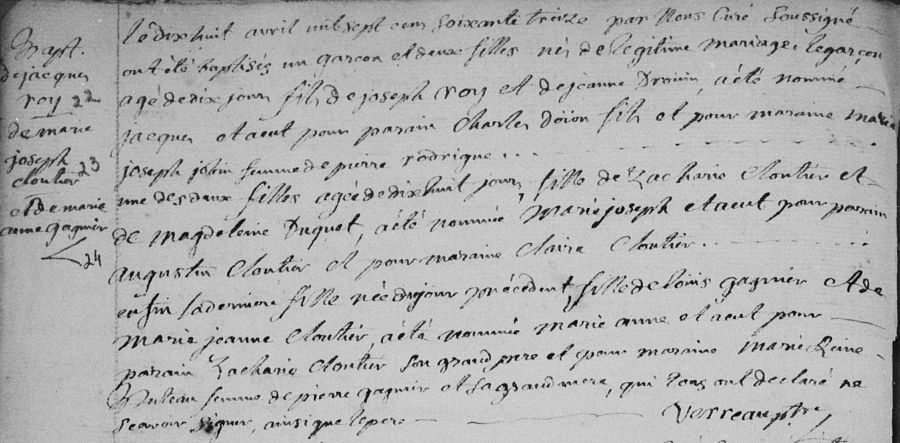 Bapt.
de jacques
roy 22
de marie
joseph
cloutier 23
et de marie
anne gagnier
24
le dix huit avril mil sept cent soixante treize par Nous Curé Soussigné
ont été baptisés un garçon et deux filles nés de legitime mariage; le garçon
agé de dix jours fils de joseph roy et de jeanne Drouin, a été nommé
jacques et a eut pour parain Charles doion fils et pour maraine marie
joseph jobin femme de pierre rodrigue ...
une des deux filles agée de dix huit jours, fille de Zacharie Cloutier et
de magdeleine Duquet, a été nommée Marie joseph et a eut pour parain
augustin Cloutier et pour maraine Claire Cloutier ...
enfin la derniere fille née du jour précédent, fille de louis gagnier et de
marie jeanne Cloutier, a été nommée marie anne et a eut pour
parain Zacharie Cloutier son grand pere et pour maraine Marie Reine
femme de pierre gagnier et sa grand mere, qui tous ont declaré ne
scavoir signer, ainsi que le pere
Verreau ptre